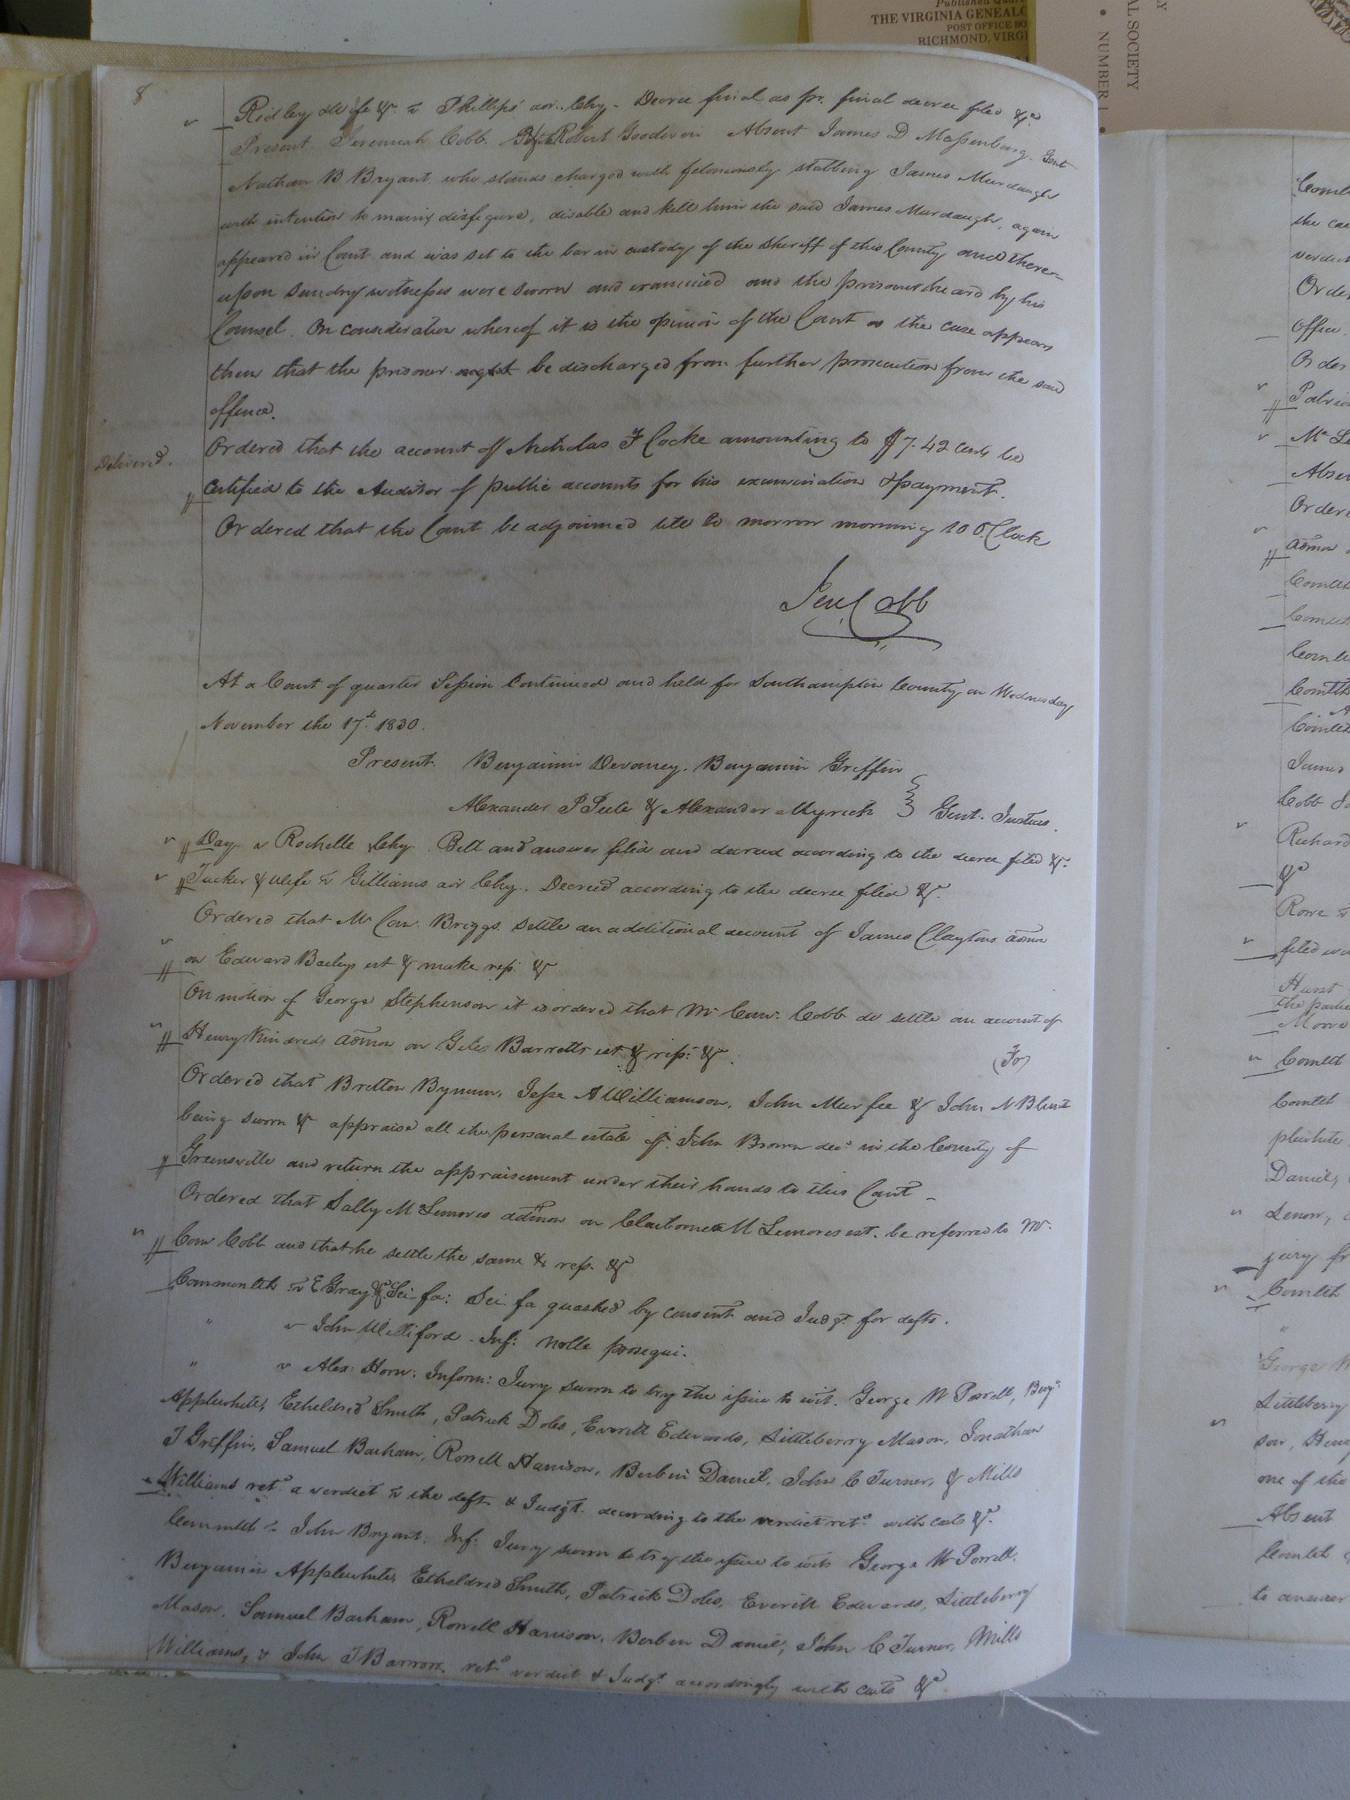 Published Quar
THE VIRGINIA GENEALO
POST OFFICE BO
RICHMOND, VIRGI
AL SOCIETY
NUMBER 1
8
Ridley & Wife &c vs Phillips' adr. Chy. Decree final as pr. final decree filed &c.
Present Jeremiah Cobb. Robert Goodwin Absent James D Massenburg. Gent
Nathan B Bryant, who stands charged with feloniously stabbing James Murdaugh
with intention to maim, disfigure, disable and kill him the said James Murdaugh, again
appeared in Court and was set to the bar in custody of the Sheriff of this County and there-
upon sundry witnesses were sworn and examined and the prisoner heard by his
Counsel. On consideration whereof it is the opinion of the Court as the case appears
then that the prisoner ought be discharged from further prosecution from the said
offence.
Delivered.
Ordered that the account of Nicholas F Locke amounting to $7.42 cents be
certified to the Auditor of public accounts for his examination & payment.
Ordered that the Court be adjourned till to morrow morning 10 O'Clock
Jere Cobb
At a Court of quarter Session Continued and held for Southampton County on Wednesday
November the 17th. 1830.
Present. Benjamin Devaney. Benjamin Griffin
Alexander P Peete & Alexander Myrick } Gent. Justices.
Day vs Rochelle Chy. Bill and answer filed and decreed according to the decree filed &c.
Tucker & Wife vs Gilliams air Chy. Decreed according to the decree filed &c.
Ordered that Mr Com. Briggs settle an additional account of James Claytons admon
on Edward Baileys est & make rep. &c
On motion of George Stephenson it is ordered that Mr Com. Cobb do settle an account of
Henry Kindreds admon on Giles Barretts est & rep. &c.
(Fo)
Ordered that Britton Bynum, Jesse A Williamson, John Murfee & John N Blunt
being sworn & appraise all the personal estate of John Brown decd in the County of
Greensville and return the appraisement under their hands to this Court -
Ordered that Sally M Lemores admon on Claiborne M Lemores est. be referred to Mr.
Com Cobb and that he settle the same & rep. &c
Commonlth vs E Gray &c Sci fa: Sci fa quashed by consent and Judgt for defts.
" vs John Williford. Inf: nolle prosequi.
" vs Alex: Horn: Inform: Jury sworn to try the issue to wit. George W Powell, Benj:
Applewhite, Etheldred Smith, Patrick Doles, Everitt Edwards, Littleberry Mason, Jonathan
T Griffin, Samuel Barham, Rowell Harrison, Berben Daniel, John C Turner, & Mills
Williams retd a verdict vs the deft & Judgt. according to the verdict retd with costs &c.
Commlth vs John Bryant. Inf. Jury sworn to try the issue to wit George W Powell.
Benjamin Applewhite, Etheldred Smith, Patrick Doles, Everitt Edwards, Littleberry
Mason, Samuel Barham, Rowell Harrison, Berben Daniel, John C Turner, Mills
Williams, & John T Barrow, retd verdict & Judgt accordingly with costs &c